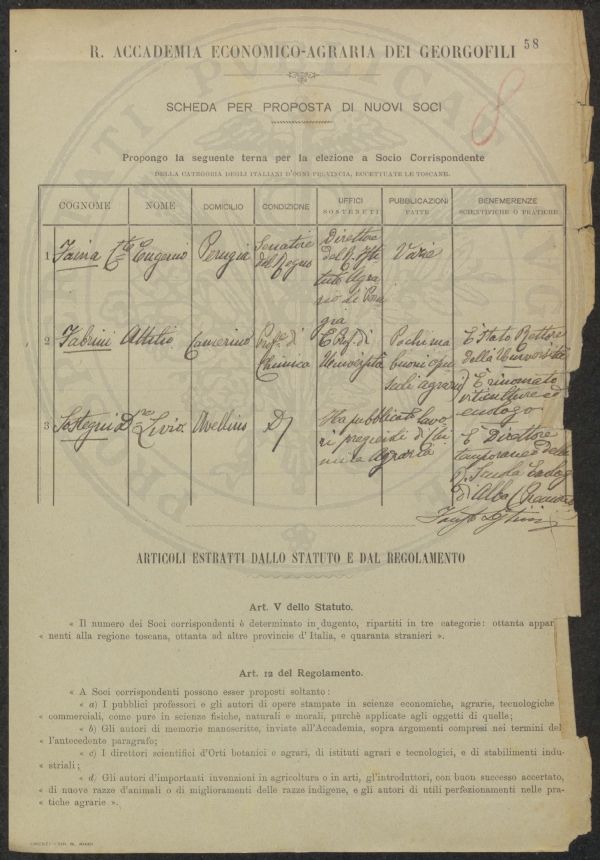 58
R. ACCADEMIA ECONOMICO-AGRARIA DEI GEORGOFILI
8
SCHEDA PER PROPOSTA DI NUOVI SOCI
Propongo la seguente terna per la elezione a Socio Corrispondente
DELLA CATEGORIA DEGLI ITALIANI D'OGNI PROVINCIA, ECCETTUATE LE TOSCANE.
COGNOME NOME DOMICILIO CONDIZIONE UFFICI SOSTENUTI PUBBLICAZIONI FATTE BENEMERENZE SCIENTIFICHE O PRATICHE
1 Faina Cte Eugenio Perugia Senatore del Regno Direttore del R. Isti tuto Agra rio di Peru gia Varie
2 Fabrini Attilio Camerino Profre di Chimica È Prof. di Università Pochi ma buoni opu scoli agrari È stato Rettore della Università È rinomato viticultore ed enologo
3 Sostegni D Livio Avellino D Ha pubblicato lavo ri pregevoli di Chi mica Agraria È Direttore temporaneo della Scuola di Alba
ARTICOLI ESTRATTI DALLO STATUTO E DAL REGOLAMENTO
Art. V dello Statuto.
« Il numero dei Soci corrispondenti è determinato in dugento, ripartiti in tre categorie: ottanta appar
« nenti alla regione toscana, ottanta ad altre provincie d'Italia, e quaranta stranieri ».
Art. 12 del Regolamento.
« A Soci corrispondenti possono esser proposti soltanto:
« a) I pubblici professori e gli autori di opere stampate in scienze economiche, agrarie, tecnologiche
« commerciali, come pure in scienze fisiche, naturali e morali, purchè applicate agli oggetti di quelle;
« b) Gli autori di memorie manoscritte, inviste all'Accademia, sopra argomenti compresi nei termini del
« l'antecedente paragrafo;
« c) I direttori scientifici d'Orti botanici e agrari, di istituti agrari e tecnologici, e di stabilimenti indu-
« striali;
« d. Gli autori d'importanti invenzioni in agricoltura o in arti, gl'introduttori, con buon successo accertato,
« di nuove razze d'animali o di miglioramenti delle razze indigene, e gli autori di utili perfezionamenti nelle pra-
« tiche agrarie ».